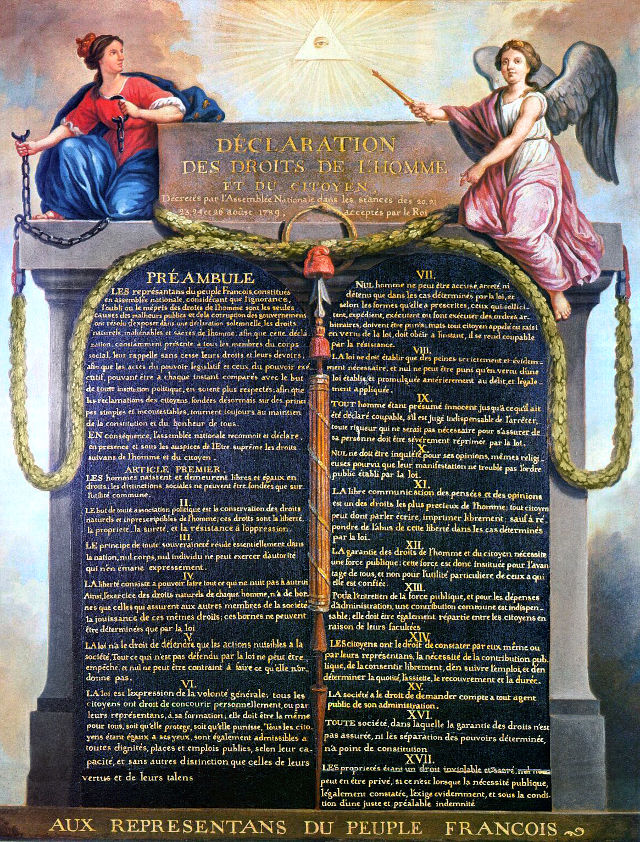 DÉCLARATION
DES DROITS DE L'HOMME
ET DU CITOYEN,
Décrétés par l'Assemblée Nationale dans les séances des 20, 21
23, 24 et 26 août 1789, acceptés par le Roi
PRÉAMBULE
LES représentans du peuple François, constitués
en assemblée nationale, considérant que l'ignorance,
l'oubli ou le mépris des droits de l'homme sont les seules
causes des malheurs publics et de la corruption des gouvernemens
ont résolu d'exposer dans une déclaration solemnelle, les droits
naturels, inaliénables et sacrés de l'homme; afin que cette décla
ration, constamment présente a tous les membres du corps
social, leur rappelle sans cesse leurs droits et leurs devoirs;
afin que les actes du pouvoir législatif et ceux du pouvoir exé
cutif, pouvant être a chaque instant comparés avec le but
de toute institution politique, en soient plus respectés; afin que
les réclamations des citoyens, fondées désormais sur des prin
pes simples et incontestables, tournent toujours au maintien
de la constitution et du bonheur de tous.
EN conséquence, l'assemblée nationale reconnoit et déclare,
en présence et sous les auspices de l'Etre suprême les droits
suivans de l'homme et du citoyen.
ARTICLE PREMIER.
LES hommes naissent et demeurent libres et égaux en
droits; les distinctions sociales ne peuvent être fondées que sur
l'utilité commune.
II.
LE but de toute association politique est la conservation des droits
naturels et inprescriptibles de l'homme; ces droits sont la liberté,
la propriété, la sureté, et la résistance à l'oppression.
III.
LE principe de toute souveraineté réside essentiellement dans
la nation, nul corps, nul individu ne peut exercer d'autorité
qui n'en émane expressement.
IV.
LA liberté consiste a pouvoir faire tout ce qui ne nuit pas à autrui
Ainsi, l'exercice des droits naturels de chaque homme, n'a de bor
nes que celles qui assurent aux autres membres de la société
la jouissance de ces mêmes droits; ces bornes ne peuvent
être déterminées que par la loi
V.
LA loi n'a le droit de défendre que les actions nuisibles à la
société. Tout ce qui n'est pas défendu par la loi ne peut être
empêché, et nul ne peut être contraint à faire ce qu'elle n'or
donne pas.
VI.
LA loi est l'expression de la volonté générale; tous les
citoyens ont droit de concourir personnellement, ou par
leurs représentans, à sa formation; elle doit être la même
pour tous, soit qu'elle protege, soit qu'elle punisse. Tous les cito
yens étant égaux à ses yeux, sont également admissibles à
toutes dignités, places et emplois publics, selon leur ca
pacité, et sans autres distinction que celles de leurs
vertus et de leurs talens.
VII.
NUL homme ne peut être accusé, arreté, ni
détenu que dans les cas déterminés par la loi, et
selon les formes qu'elle a prescrites. ceux qui sollici
tent, expédient, exécutent ou font exécuter des ordres ar
bitraires, doivent être punis; mais tout citoyen appelé ou saisi
en vertu de la loi, doit obéir a l'instant, il se rend coupable
par la résistance.
VIII.
LA loi ne doit établir que des peines strictement et évidem
ment nécessaire, et nul ne peut être puni qu'en vertu d'une
loi établie et promulguée antérieurement au délit, et légale
ment appliquée.
IX.
TOUT homme étant présumé innocent jusqu'a ce qu'il ait
été déclaré coupable, s'il est jugé indispensable de l'arrêter,
toute rigueur qui ne serait pas nécessaire pour s'assurer de
sa personne doit être sévèrement réprimée par la loi.
X.
NUL ne doit être inquiété pour ses opinions, mêmes religi
euses pourvu que leur manifestation ne trouble pas l'ordre
public établi par la loi.
XI.
LA libre communication des pensées et des opinions
est un des droits les plus precieux de l'homme; tout citoyen
peut dont parler écrire, imprimer librement: sauf à ré
pondre de l'abus de cette liberté dans les cas déterminés
par la loi.
XII.
LA garantie des droits de l'homme et du citoyen nécessite
une force publique; cette force est donc instituée pour l'avan
tage de tous, et non pour l'utilité particuliere de ceux a qui
elle est confiée.
XIII.
POUR l'entretien de la force publique, et pour les dépenses
d'administration, une contribution commune est indispen-
sable; elle doit être également répartie entre les citoyens en
raison de leurs facultées
XIV.
LES citoyens ont le droit de constater par eux même ou
par leurs représentans, la nécessité de la contribution pub
lique, de la consentir librement, d'en suivre l'emploi, et d'en
déterminer la quotité, l'assiette, le recouvrement et la durée.
XV.
LA société a le droit de demander compte a tout agent
public de son administration.
XVI.
TOUTE société, dans laquelle la garantie des droits n'est
pas assurée, ni les séparation des pouvoirs déterminée,
n'a point de constitution
XVII.
LES propriétés étant un droit inviolable et sacré, nul ne
peut en être privé, si ce n'est lorsque la nécessité publique,
légalement constatée, l'exige evidemment, et sous la condi
tion d'une juste et préalable indemnité
AUX REPRESENTANS DU PEUPLE FRANCOIS